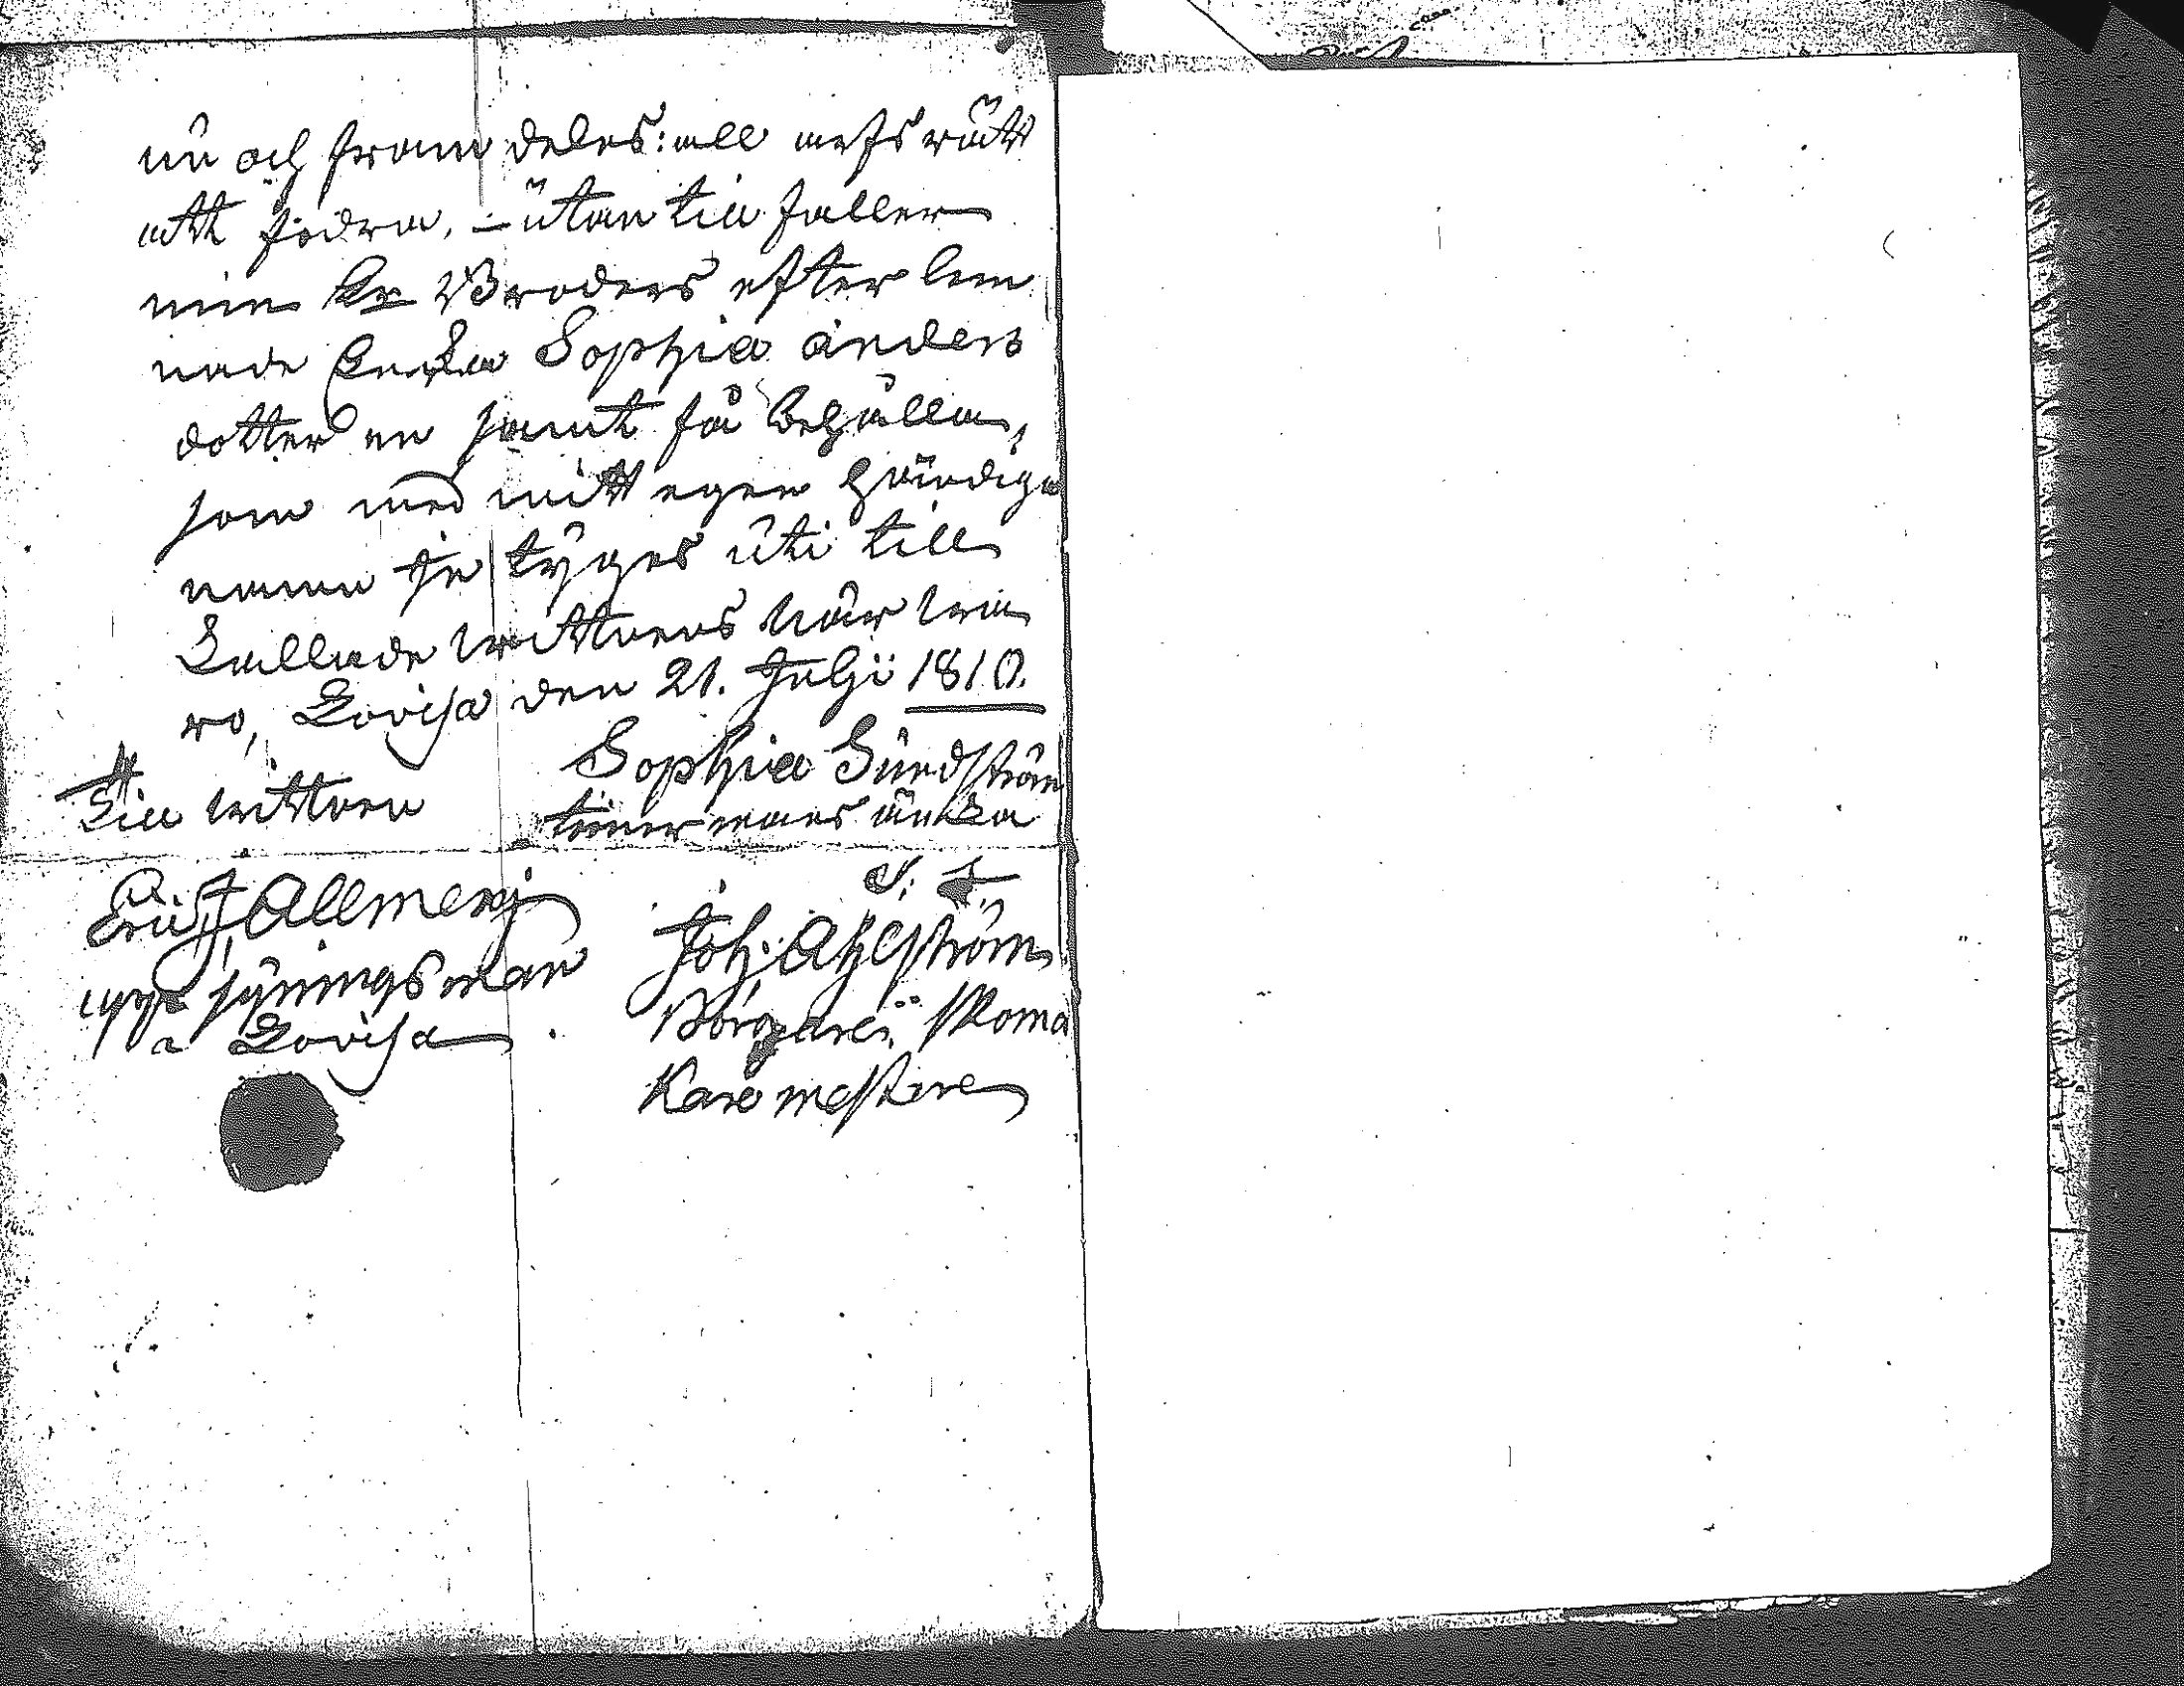 nu och fram deles: all arfs rätt
att fodra, – utan till faller
min Kr Broders efter lem
nade Enka Sophia anders
dotter en samt få behålla,
som med mitt egen händiga
namn be tyges uti till
kallade wittnens när wa
ro, Lovisa den 21. Julji 1810.
Sophia Sundström
timer mans änka
Till wittnen
Eric Allmen
upp syningsman
a Lovisa
Joh: Ahlström
Borgare, skoma
kare mestare